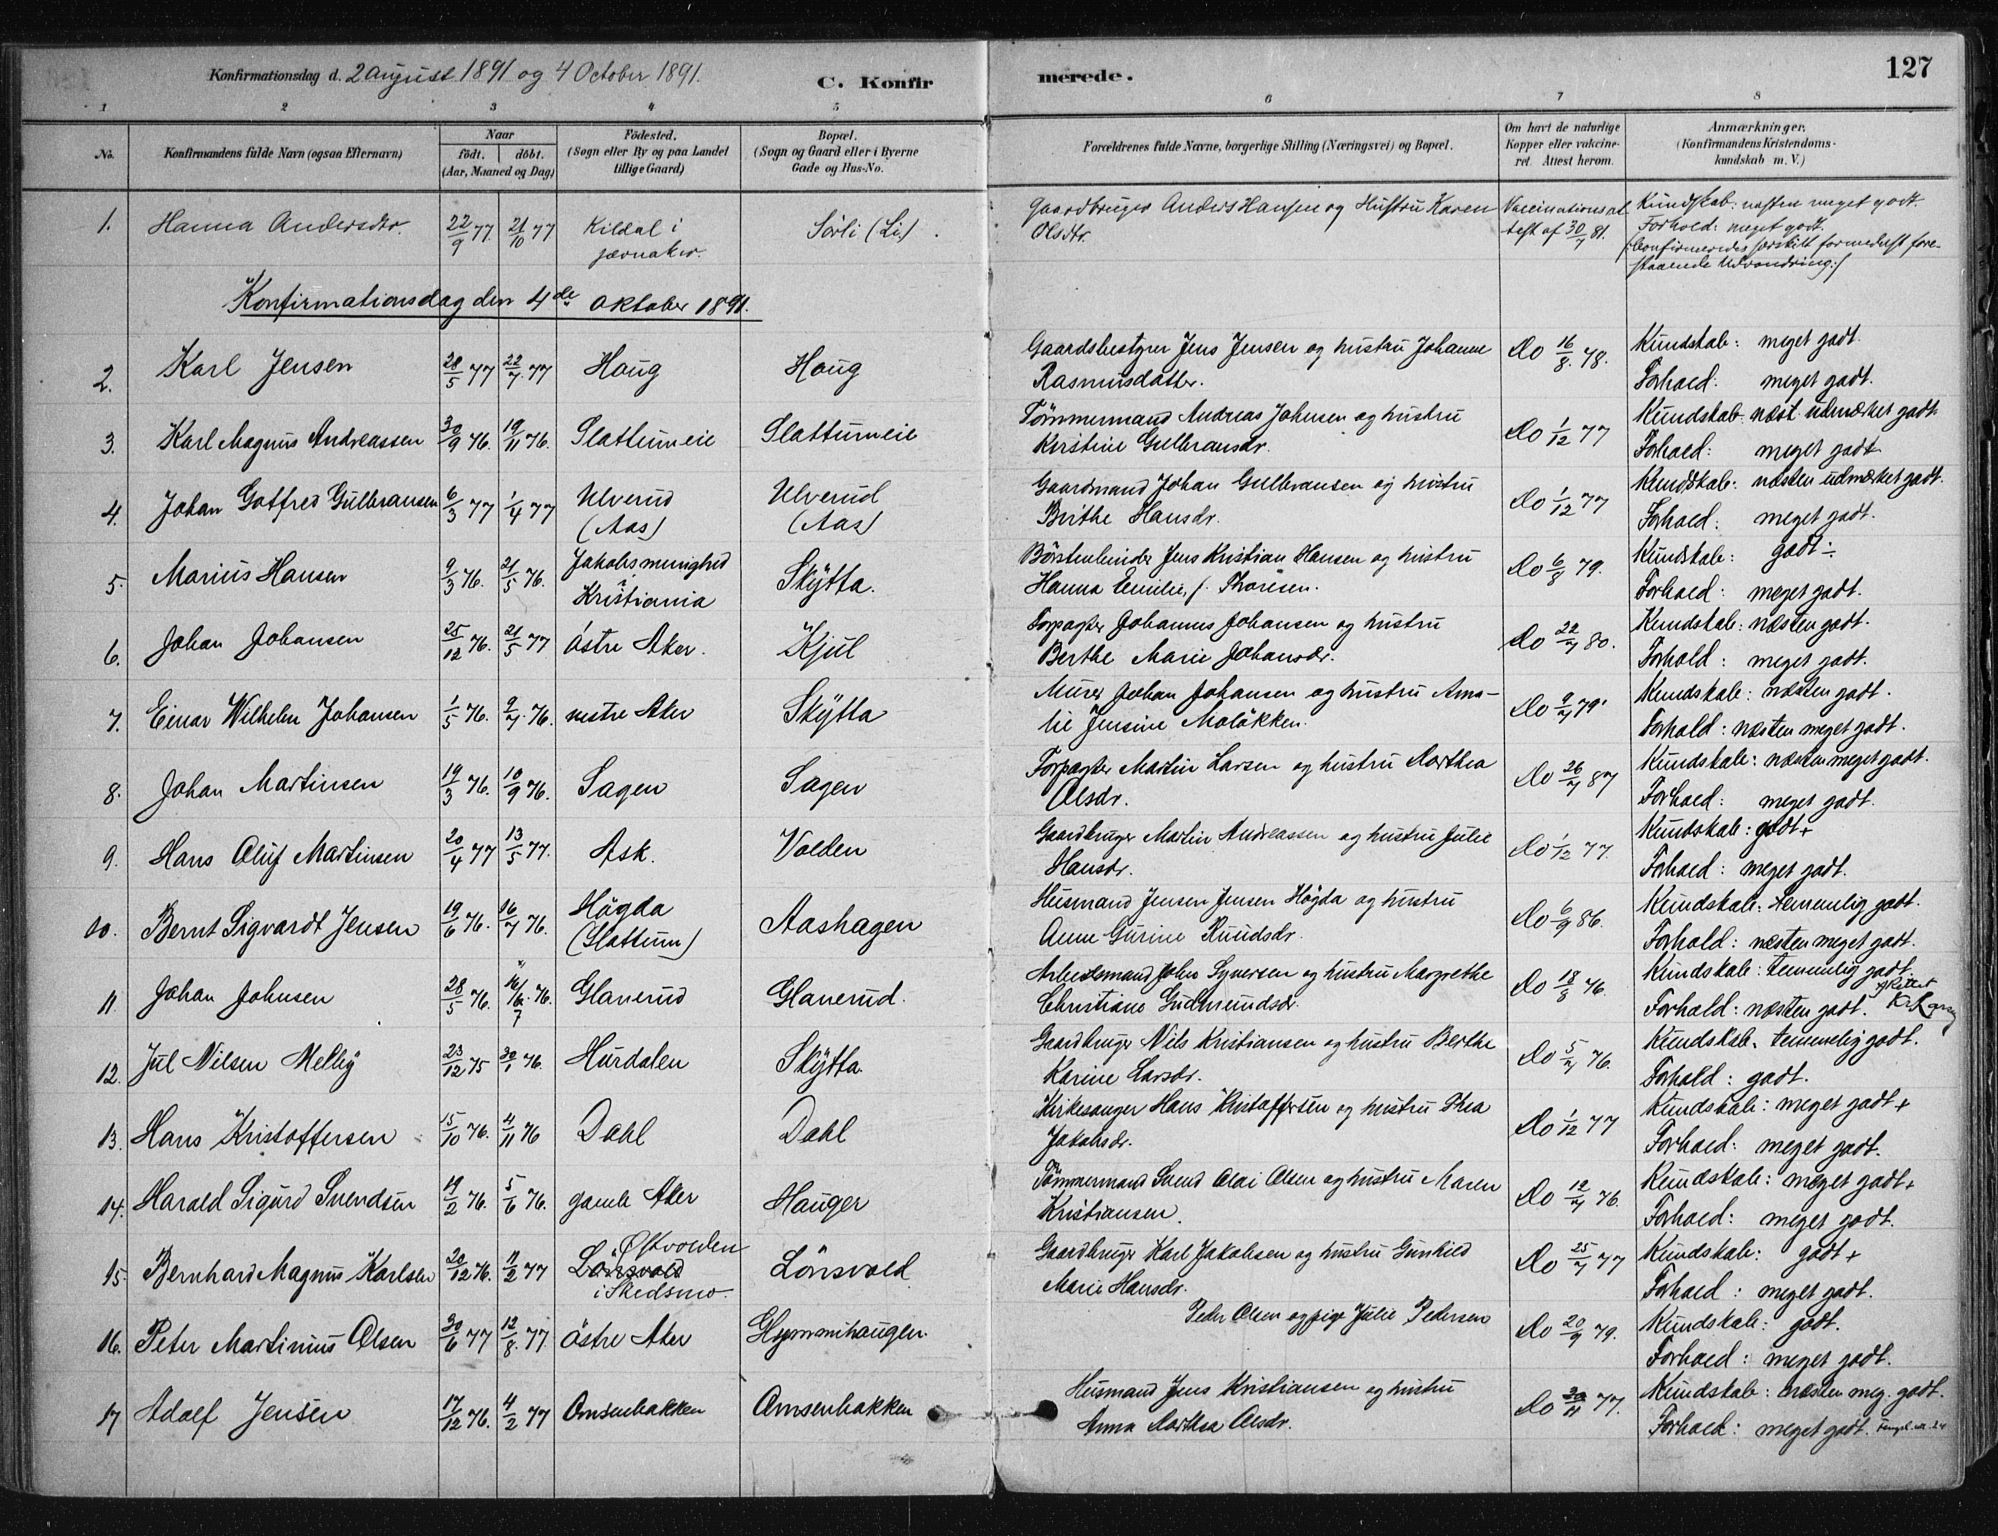 Konfirmationsdag d. 2 august 1891 og 4 October 1891.
C. Konfirmerede.
127
1 2 3 4 5 6 7 8
No.
Konfirmandens fulde Navn (ogsaa Efternavn)
Naar
født. döbt.
(Aar, Maaned og Dag)
Födested.
(Sogn eller By og paa Landet
tillige Gaard)
Bopæl.
(Sogn og Gaard eller i Byerne
Gade og Hus-No.
Forældrenes fulde Navne, borgerlige Stilling (Næringsvei) og Bopæl.
Om havt de naturlige
Kopper eller vakcine-
ret. Attest herom.
Anmærkninger.
(Konfirmandens Kristendoms-
kundskab m. V.)
1. Hanna Andersdtr. 22/9 77. 21/10 77 Kildal i Sørli (Li) Gaardbruger Anders Hansen og Hustru Karen Vaccinationsat Kundskab: næsten meget godt.
jævnaker. Olsdtr. test af 30/7 81. Forhold: meget godt.
(Confirmeredes særskilt formedelst fore-
staaende Udvandring:/
Konfirmationsdag den 4de oktober 1891.
2. Karl Jensen 28/5 77 22/7 77 Houg Houg Gaardsbestyrer Jens Jensen og hustru Johanne Do 16/8 78. Kundskab: meget godt.
Rasmusdatter. Forhold: meget godt.
3. Karl Magnus Andreassen 30/9 76. 19/11 76. Slattumeie Slattumeie Tömmermand Andreas Johnsen og hustru Do 1/12 77 Kundskab: næst. udmærket godt
Kristine Gulbransdr. Forhold: meget godt.
4. Johan Gotfred Gulbransen 6/3 77 1/4 77 Ulverud Ulverud Gaardmand Johan Gulbransen og hustru Do 1/12 77 Kundskab: næsten udmærket godt.
(Aas) (Aas) Birthe Hansdr. Forhold: meget godt.
5. Marius Hansen 9/3 76. 21/5 76. Jakobsmenighed Skÿtta. Börstenbinder Jens Kristian Hansen og hustru Do 6/8 79. Kundskab: godt ÷
Kristiania Hanna Emilie, f. Thoresen. Forhold: meget godt.
6. Johan Johansen 25/12 76. 21/5 77 östre Aker. Kjul Forpagter Johannes Johansen og hustru Do 22/7 80. Kundskab: næsten godt.
Berthe Marie Johansdr. Forhold: meget godt.
7. Einar Wilhelm Johansen 1/5 76. 9/7 76. vestre Aker Skÿtta Murer Johan Johansen og hustru Ama- Do 9/7 79. Kundskab: næsten godt.
lie Jensine Molökken. Forhold: næsten meget godt.
8. Johan Martinsen 19/3 76. 10/9 76. Sagen Sagen Forpagter Martin Larsen og hustru Dorthea Do 26/7 87 Kundskab: næsten meget godt.
Olsdr. Forhold: meget godt.
9. Hans Oluf Martinsen 20/4 77 13/5 77. Ask. Volden Gaardbruger Martin Andreassen og hustru Julie Do 1/12 77. Kundskab: godt +
Hansdr. Forhold: meget godt.
10. Bernt Sigvardt Jensen 19/6 76. 16/7 76. Högda Aashagen Husmand Jensen Jensen Högda og hustru Do 6/9 86. Kundskab: temmelig godt.
(Slattum) Anne Gurine Knudsdr. Forhold: næsten meget godt.
11. Johan Johnsen 28/5 76. 16/7 76. Glanerud Glanerud. Arbeidsmand John Syversen og hustru Margrethe Do 18/8 76. Kundskab: temmelig godt.
Christiane Gudmundsdr. Forhold: næsten godt.
12. Jul Nilsen Melbÿ 23/12 75 30/1 76. Hurdalen Skÿtta. Gaardbruger Nils Kristiansen og hustru Berthe Do 5/7 76. Kundskab: temmelig godt.
Karine Larsdr. Forhold: godt.
13. Hans Kristoffersen 15/10 76. 4/11 76 Dahl Dahl Kirkesanger Hans Kristoffersen og hustru Thea Do 1/12 77 Kundskab: meget godt +
Jakobsdr. Forhold: meget godt.
14. Harald Sigurd Svendsen 19/2 76. 5/6 76. gamle Aker Hauger Tömmermand Svend Olai Olsen og hustru Maren Do 12/7 76. Kundskab: meget godt +
Kristiansen. Forhold: meget godt.
15. Bernhard Magnus Karlsen 20/12 76. 11/2 77 Østvolden Lönsvold Gaardbruger Karl Jakobsen og hustru Gunhild Do 25/7 77 Kundskab: godt +
i Skedsmo. Marie Hansdr. Forhold: meget godt.
16. Peter Martinius Olsen 30/6 77 12/8 77. östre Aker Gjemmihaugen Peder Olsen og pige Julie Pedersen Do 20/9 79. Kundskab: godt.
Forhold: meget godt.
17 Adolf Jensen 17/12 76. 4/2 77 Omsenbakken Omsenbakken Husmand Jens Kristiansen og hustru Do 30/11 77. Kundskab: næsten meg. godt.
Anna Dorthea Olsdr. Forhold: meget godt.